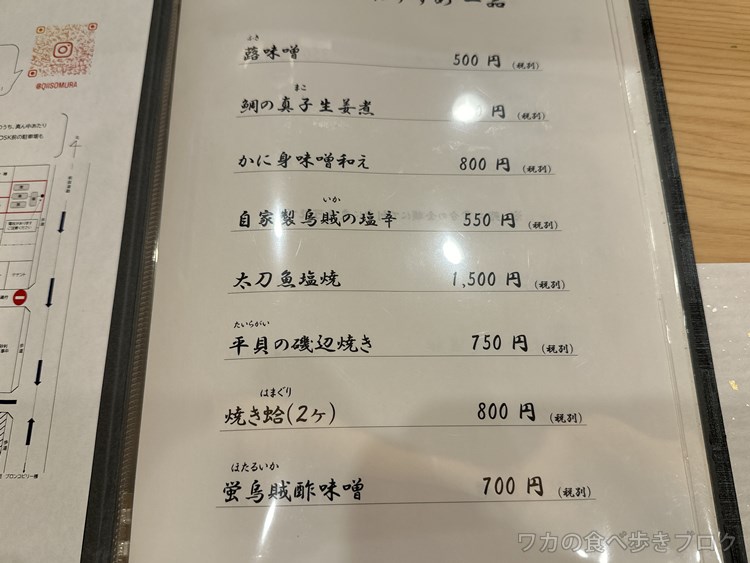 一品
ふき
蕗味噌 500円(税別)
まこ
鯛の真子生姜煮 円(税別)
かに身味噌和え 800円(税別)
いか
自家製烏賊の塩辛 550円(税別)
太刀魚塩焼 1,500円(税別)
たいらがい
平貝の磯辺焼き 750円(税別)
はまぐり
焼き蛤(2ヶ) 800円(税別)
ほたるいか
蛍烏賊酢味噌 700円(税別)
@QIISOMURA
ブロンコビリー様
ワカの食べ歩きブログ